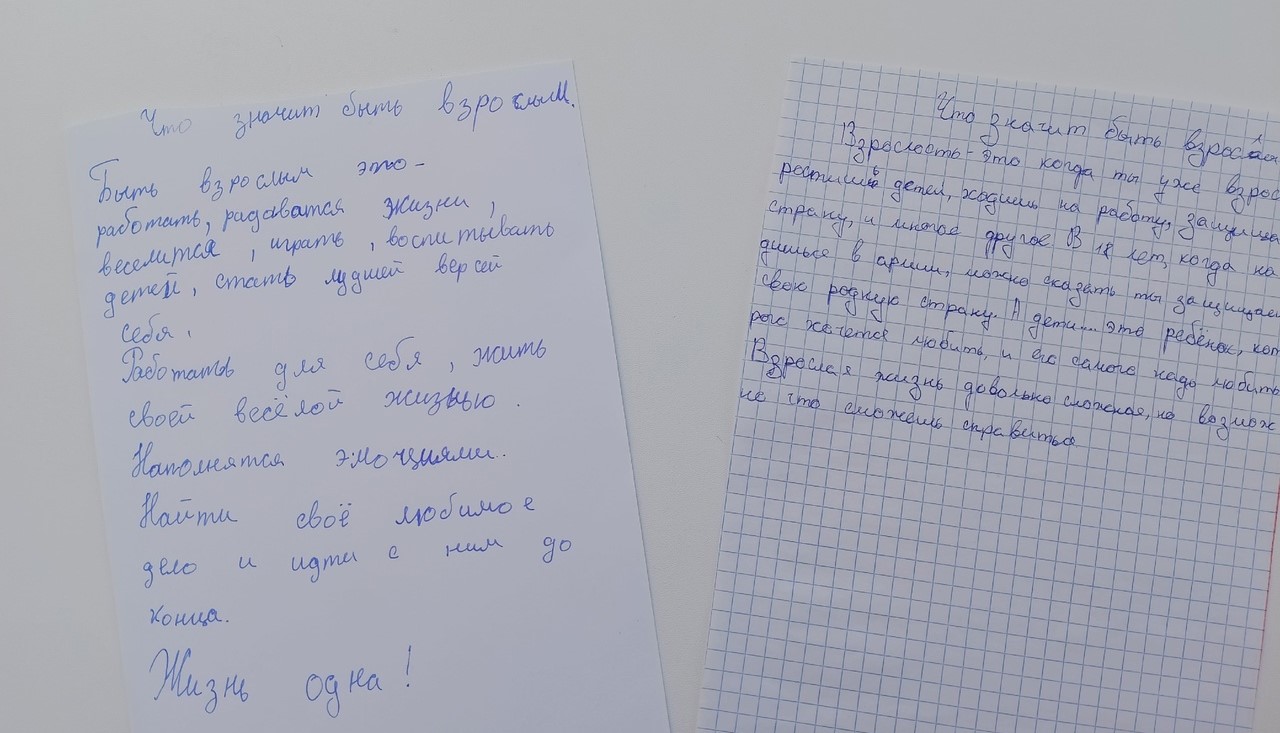 Что значит быть взрослым.
Быть взрослым это -
работать, радаватся жизни,
веселится, играть, воспитывать
детей, стать лудшей версей
себя.
Работать для себя, жить
своей весёлой жизнью.
Наполнятся эмоциями.
Найти своё любимое
дело и идти с ним до
конца.
Жизнь одна!
Что значит быть
Взрослость - это когда ты уже взрос
ростишь детей, ходишь на работу, защища
страну, и многое другое В 18 лет, когда на
дишься в армии, можно сказать ты защищаеш
свою родную страну. А дети... это ребёнок, кот
рого хочется любить, и его самого надо любить
Взрослая жизнь довольно сложная, но возмож
но что сможешь справиться